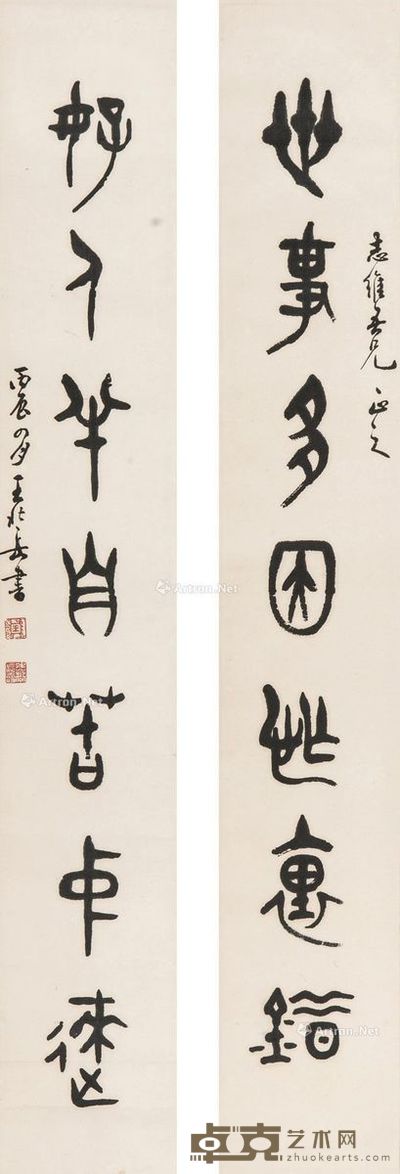 世事多因忙裏錯
志維吾兄 正之
好人半自苦中來
丙辰四月 王北岳書
Artron.Net
Artron.Net
Artron.Net
Artron.Net
卓克艺术网
zhuokearts.com